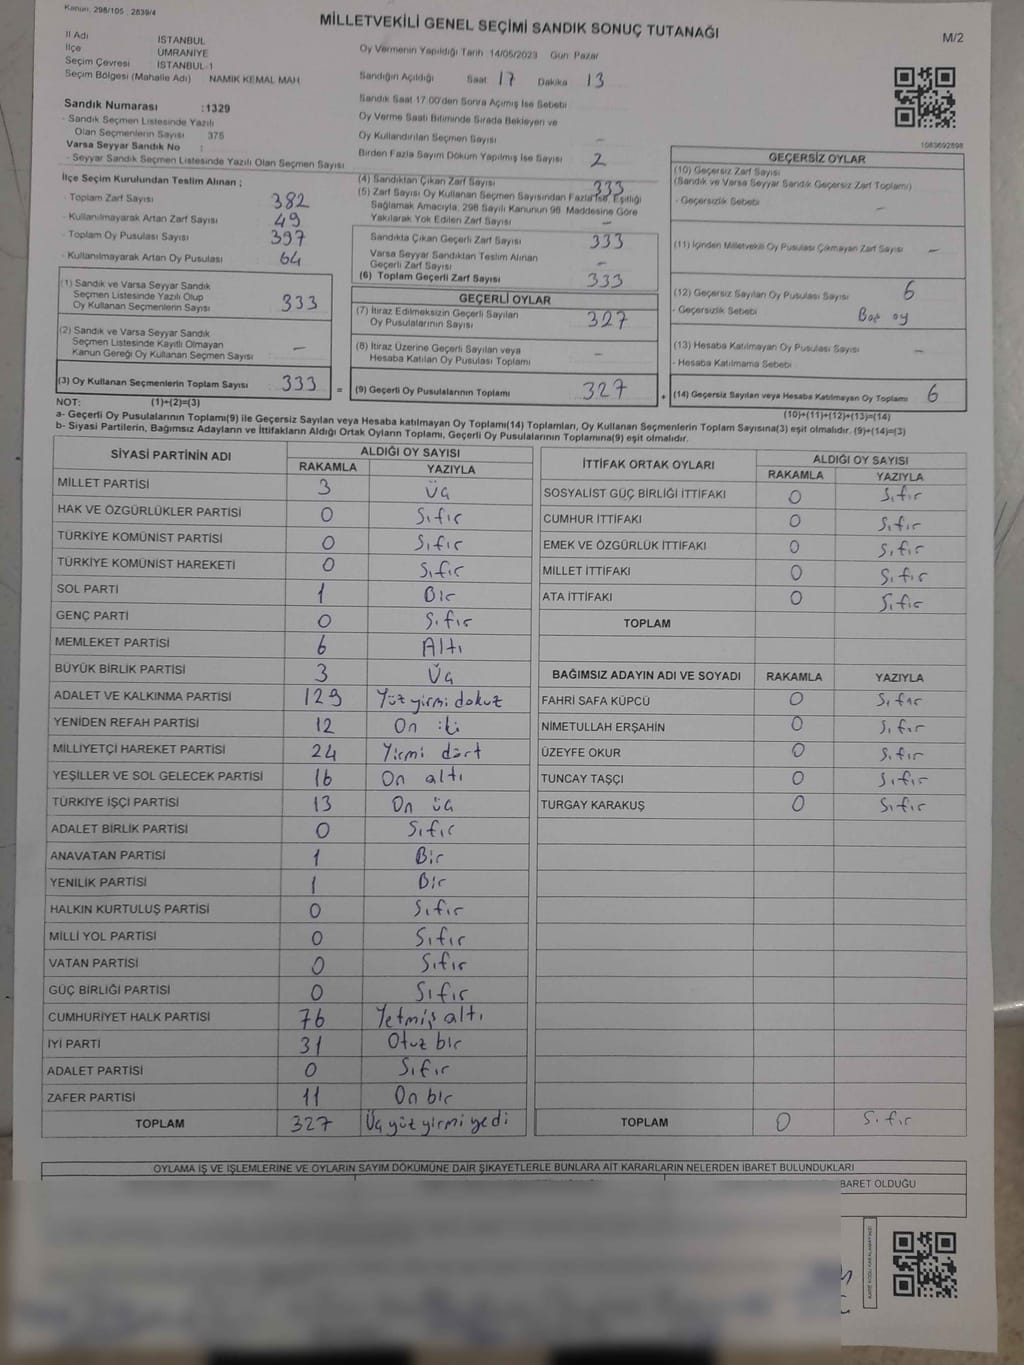 Kanun: 298/105 , 2839/4
MİLLETVEKİLİ GENEL SEÇİMİ SANDIK SONUÇ TUTANAĞI
M/2
İl Adı İSTANBUL
İlçe ÜMRANİYE
Seçim Çevresi İSTANBUL-1
Seçim Bölgesi (Mahalle Adı) NAMIK KEMAL MAH.
Sandık Numarası :1329
- Sandık Seçmen Listesinde Yazılı
Olan Seçmenlerin Sayısı 376
Varsa Seyyar Sandık No :
- Seyyar Sandık Seçmen Listesinde Yazılı Olan Seçmen Sayısı
İlçe Seçim Kurulundan Teslim Alınan ;
- Toplam Zarf Sayısı 382
- Kullanılmayarak Artan Zarf Sayısı 49
- Toplam Oy Pusulası Sayısı 397
- Kullanılmayarak Artan Oy Pusulası 64
(1) Sandık ve Varsa Seyyar Sandık
Seçmen Listesinde Yazılı Olup
Oy Kullanan Seçmenlerin Sayısı 333
(2) Sandık ve Varsa Seyyar Sandık
Seçmen Listesinde Kayıtlı Olmayan
Kanun Gereği Oy Kullanan Seçmen Sayısı —
(3) Oy Kullanan Seçmenlerin Toplam Sayısı 333 =
Oy Vermenin Yapıldığı Tarih :14/05/2023 Gün: Pazar
Sandığın Açıldığı Saat 17 Dakika 13
Sandık Saat 17.00'den Sonra Açılmış İse Sebebi
Oy Verme Saati Bitiminde Sırada Bekleyen ve
Oy Kullandırılan Seçmen Sayısı —
Birden Fazla Sayım Döküm Yapılmış İse Sayısı 2
(4) Sandıktan Çıkan Zarf Sayısı 333
(5) Zarf Sayısı Oy Kullanan Seçmen Sayısından Fazla İse, Eşitliği
Sağlamak Amacıyla, 298 Sayılı Kanunun 98. Maddesine Göre
Yakılarak Yok Edilen Zarf Sayısı —
Sandıkta Çıkan Geçerli Zarf Sayısı 333
Varsa Seyyar Sandıktan Teslim Alınan
Geçerli Zarf Sayısı —
(6) Toplam Geçerli Zarf Sayısı 333
GEÇERLİ OYLAR
(7) İtiraz Edilmeksizin Geçerli Sayılan
Oy Pusulalarının Sayısı 327
(8) İtiraz Üzerine Geçerli Sayılan veya
Hesaba Katılan Oy Pusulası Toplamı —
(9) Geçerli Oy Pusulalarının Toplamı 327 +
1083692898
GEÇERSİZ OYLAR
(10) Geçersiz Zarf Sayısı
(Sandık ve Varsa Seyyar Sandık Geçersiz Zarf Toplamı)
- Geçersizlik Sebebi —
(11) İçinden Milletvekili Oy Pusulası Çıkmayan Zarf Sayısı —
(12) Geçersiz Sayılan Oy Pusulası Sayısı 6
- Geçersizlik Sebebi Boş oy
(13) Hesaba Katılmayan Oy Pusulası Sayısı —
- Hesaba Katılmama Sebebi
(14) Geçersiz Sayılan veya Hesaba Katılmayan Oy Toplamı 6
NOT: (1)+(2)=(3) (10)+(11)+(12)+(13)=(14)
a- Geçerli Oy Pusulalarının Toplamı(9) ile Geçersiz Sayılan veya Hesaba katılmayan Oy Toplamı(14) Toplamları, Oy Kullanan Seçmenlerin Toplam Sayısına(3) eşit olmalıdır. (9)+(14)=(3)
b- Siyasi Partilerin, Bağımsız Adayların ve İttifakların Aldığı Ortak Oyların Toplamı, Geçerli Oy Pusulalarının Toplamına(9) eşit olmalıdır.
SİYASİ PARTİNİN ADI ALDIĞI OY SAYISI
RAKAMLA YAZIYLA
MİLLET PARTİSİ 3 Üç
HAK VE ÖZGÜRLÜKLER PARTİSİ 0 Sıfır
TÜRKİYE KOMÜNİST PARTİSİ 0 Sıfır
TÜRKİYE KOMÜNİST HAREKETİ 0 Sıfır
SOL PARTİ 1 Bir
GENÇ PARTİ 0 Sıfır
MEMLEKET PARTİSİ 6 Altı
BÜYÜK BİRLİK PARTİSİ 3 Üç
ADALET VE KALKINMA PARTİSİ 129 Yüz yirmi dokuz
YENİDEN REFAH PARTİSİ 12 On iki
MİLLİYETÇİ HAREKET PARTİSİ 24 Yirmi dört
YEŞİLLER VE SOL GELECEK PARTİSİ 16 On altı
TÜRKİYE İŞÇİ PARTİSİ 13 On üç
ADALET BİRLİK PARTİSİ 0 Sıfır
ANAVATAN PARTİSİ 1 Bir
YENİLİK PARTİSİ 1 Bir
HALKIN KURTULUŞ PARTİSİ 0 Sıfır
MİLLİ YOL PARTİSİ 0 Sıfır
VATAN PARTİSİ 0 Sıfır
GÜÇ BİRLİĞİ PARTİSİ 0 Sıfır
CUMHURİYET HALK PARTİSİ 76 Yetmiş altı
İYİ PARTİ 31 Otuz bir
ADALET PARTİSİ 0 Sıfır
ZAFER PARTİSİ 11 On bir
TOPLAM 327 Üç yüz yirmi yedi
İTTİFAK ORTAK OYLARI ALDIĞI OY SAYISI
RAKAMLA YAZIYLA
SOSYALİST GÜÇ BİRLİĞİ İTTİFAKI 0 Sıfır
CUMHUR İTTİFAKI 0 Sıfır
EMEK VE ÖZGÜRLÜK İTTİFAKI 0 Sıfır
MİLLET İTTİFAKI 0 Sıfır
ATA İTTİFAKI 0 Sıfır
TOPLAM
BAĞIMSIZ ADAYIN ADI VE SOYADI RAKAMLA YAZIYLA
FAHRİ SAFA KÜPCÜ 0 Sıfır
NİMETULLAH ERŞAHİN 0 Sıfır
ÜZEYFE OKUR 0 Sıfır
TUNCAY TAŞÇI 0 Sıfır
TURGAY KARAKUŞ 0 Sıfır
TOPLAM 0 Sıfır
OYLAMA İŞ VE İŞLEMLERİNE VE OYLARIN SAYIM DÖKÜMÜNE DAİR ŞİKAYETLERLE BUNLARA AİT KARARLARIN NELERDEN İBARET BULUNDUKLARI
BARET OLDUĞU